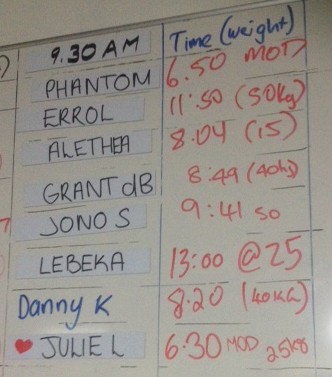 9.30 AM Time (weight)
PHANTOM 6.50 MOD
ERROL 11:50 (50kg)
ALETHEA 8.04 (15)
GRANT dB 8:49 (40kg)
JONO S 9:41 50
LEBEKA 13:00 @ 25
Danny K 8.20 (40KG)
JULIE L 6.30 MOD 25KG